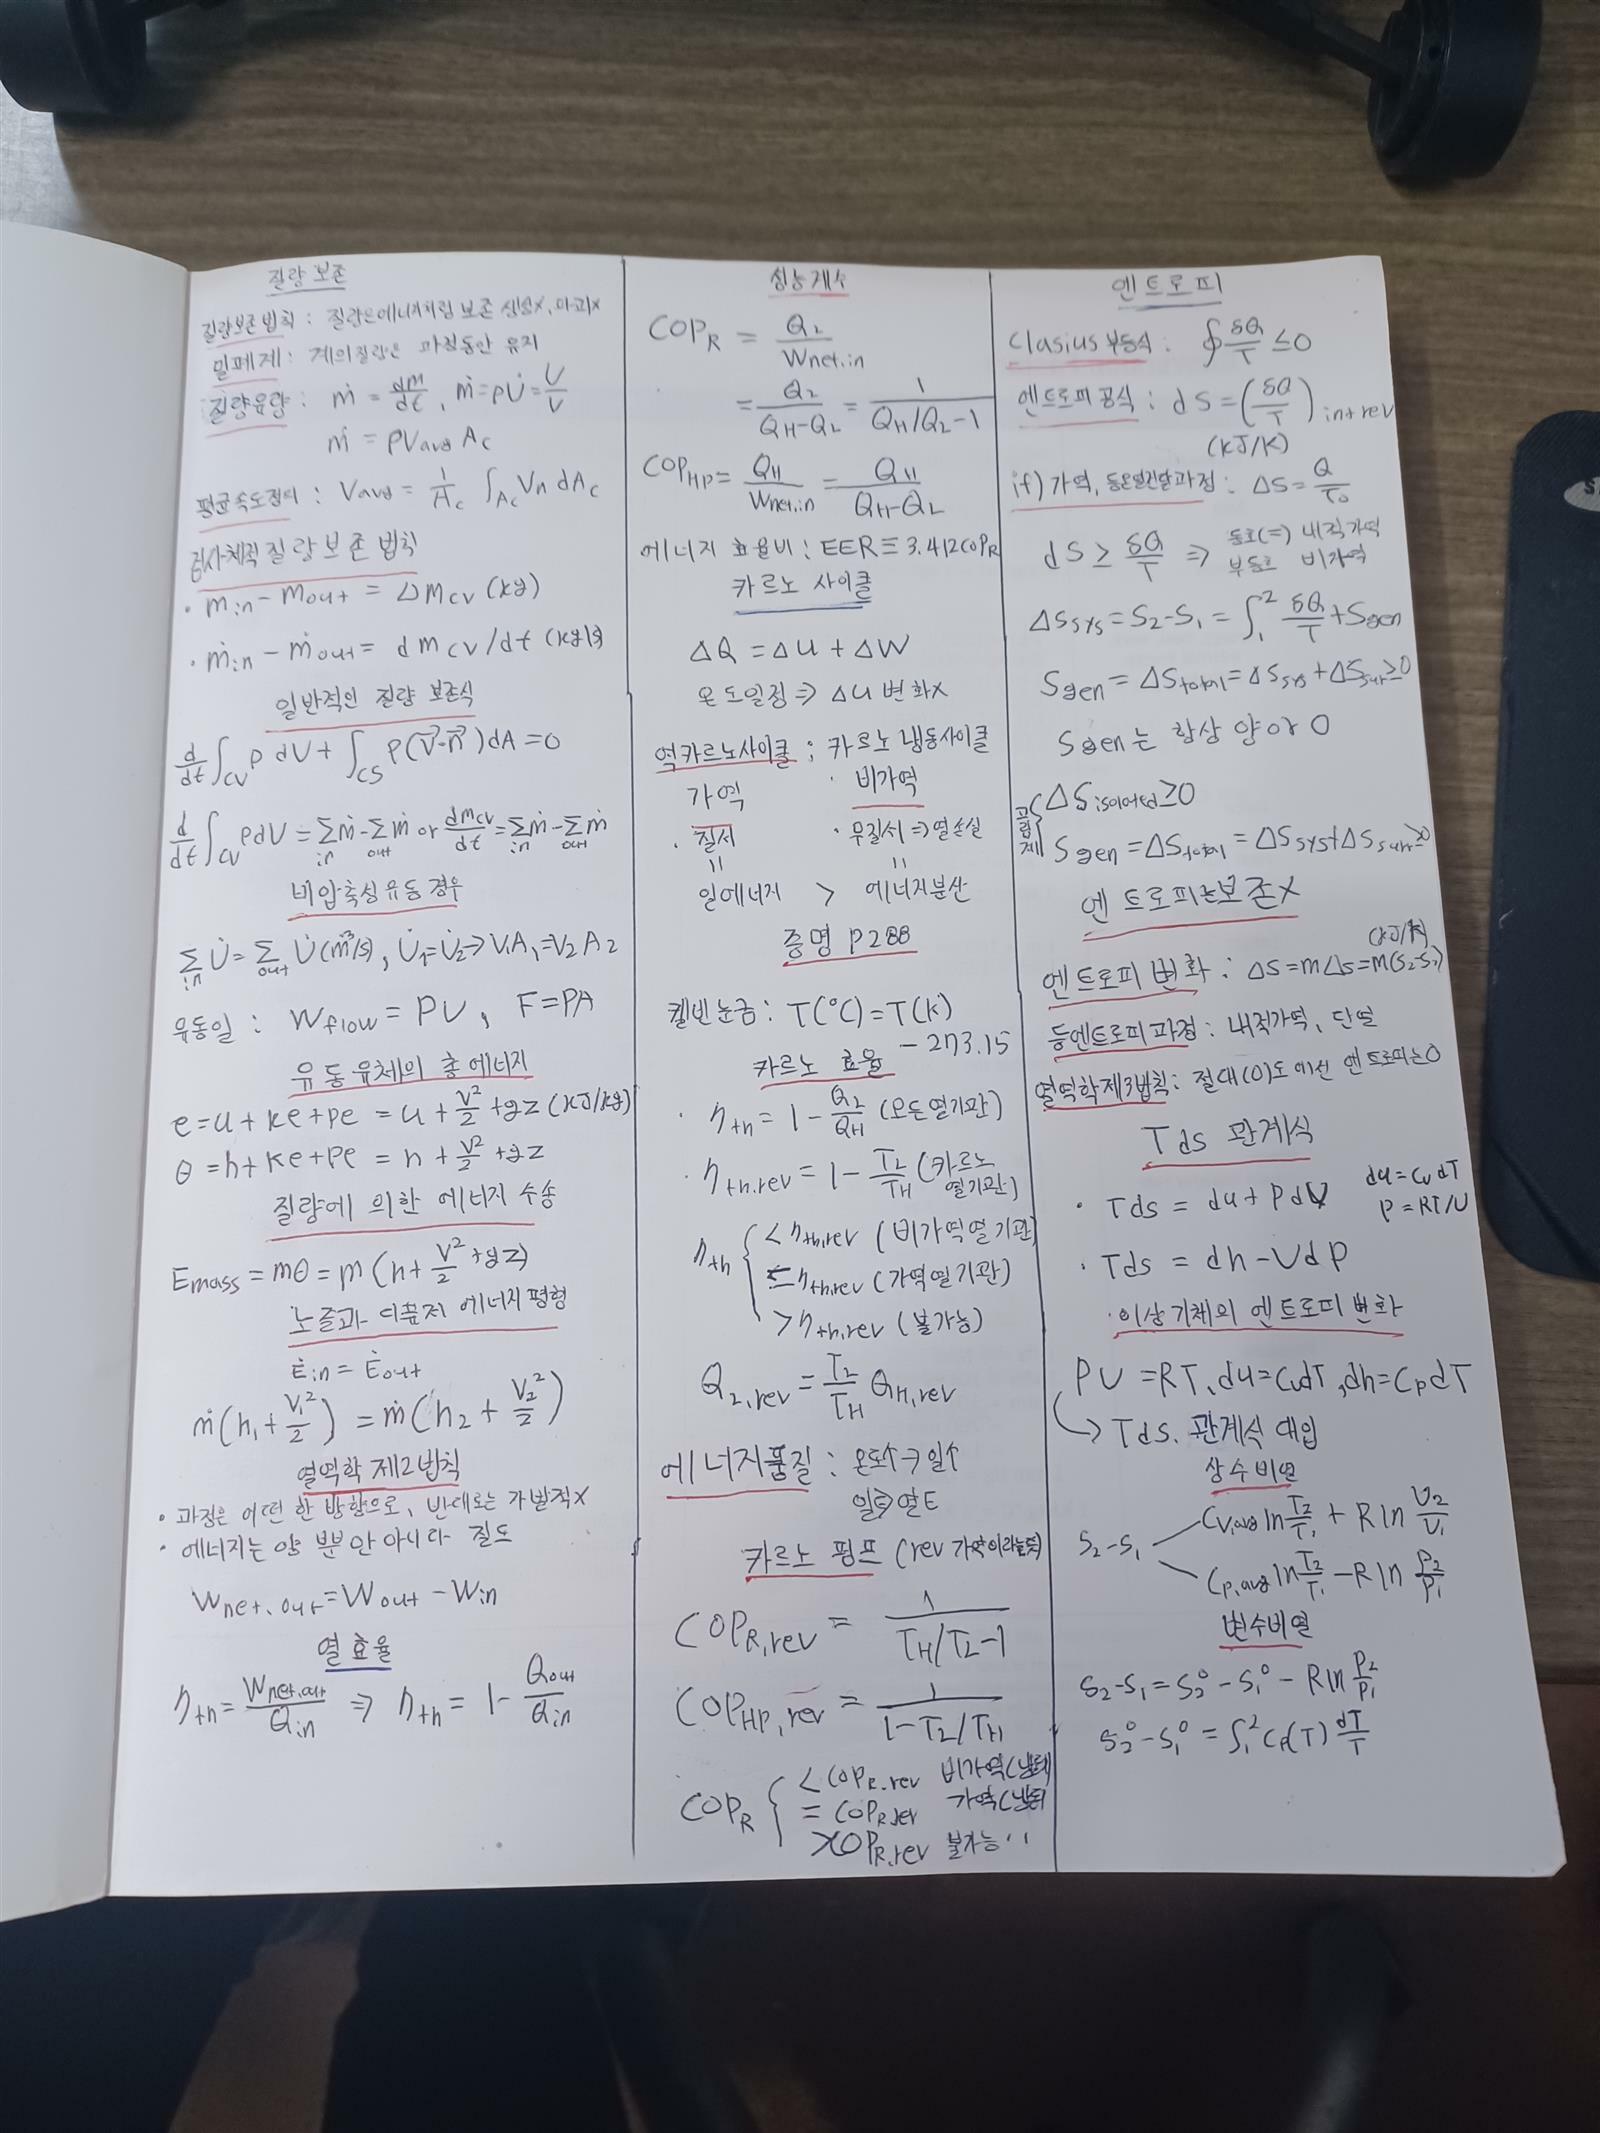 질량 보존
질량보존법칙 : 질량은 에너지처럼 보존 생성x, 파괴x
밀폐계 : 계의 질량은 과정동안 유지
질량유량 : ṁ = dm/dt , ṁ = ρU̇ = U̇/v
ṁ = ρVavg Ac
평균속도정의 : Vavg = 1/Ac ∫Ac Vn dAc
검사체적 질량 보존 법칙
· min - mout = Δmcv (kg)
· ṁin - ṁout = dmcv/dt (kg/s)
일반적인 질량 보존식
d/dt ∫CV ρ dV + ∫CS ρ(V⃗·n⃗)dA = 0
d/dt ∫CV ρdV = Σin ṁ - Σout ṁ or dmcv/dt = Σin ṁ - Σout ṁ
비압축성 유동 경우
Σin U̇ = Σout U̇ (m³/s), U̇1 = U̇2 → V1A1 = V2A2
유동일 : Wflow = PU, F = PA
유동 유체의 총 에너지
e = u + ke + pe = u + V²/2 + gz (kJ/kg)
θ = h + ke + pe = h + V²/2 + gz
질량에 의한 에너지 수송
Emass = mθ = m(h + V²/2 + gz)
노즐과 디퓨저 에너지 평형
Ėin = Ėout
ṁ(h1 + V1²/2) = ṁ(h2 + V2²/2)
열역학 제2법칙
· 과정은 어떤 한 방향으로, 반대로는 가발적x
· 에너지는 양 뿐만 아니라 질도
Wnet.out = Wout - Win
열 효율
ηth = Wnet.out/Qin ⇒ ηth = 1 - Qout/Qin
성능계수
COPR = QL/Wnet.in
= QL/(QH-QL) = 1/(QH/QL-1)
COPHP = QH/Wnet.in = QH/(QH-QL)
에너지 효율비 : EER ≡ 3.412COPR
카르노 사이클
ΔQ = Δu + ΔW
온도일정 ⇒ Δu 변화x
역카르노사이클 ; 카르노 냉동사이클
가역 · 비가역
· 질서 · 무질서 ⇒ 열손실
॥ ॥
일에너지 > 에너지분산
증명 P288
켈빈눈금 : T(°C) = T(K) - 273.15
카르노 효율
· ηth = 1 - QL/QH (모든열기관)
· ηth.rev = 1 - TL/TH (카르노 열기관)
ηth { < ηth,rev (비가역열기관)
≤ ηth,rev (가역열기관)
> ηth,rev (불가능)
QL,rev = TL/TH QH,rev
에너지품질 : 온도↑ → 일↑
일E → 열E
카르노 펌프 (rev 가역이라는뜻)
COPR,rev = 1/(TH/TL-1)
COPHP,rev = 1/(1-TL/TH)
COPR { < COPR.rev 비가역(냉동)
= COPR.rev 가역(냉동)
> COPR,rev 불가능 "
엔트로피
Clasius 부등식 : ∮δQ/T ≤ 0
엔트로피 공식 : dS = (δQ/T) int rev
(kJ/K)
if) 가역, 등온열전달과정 : ΔS = Q/T0
dS ≥ δQ/T ⇒ 등호(=) 내적가역
부등호 비가역
ΔSsys = S2 - S1 = ∫1² δQ/T + Sgen
Sgen = ΔStotal = ΔSsys + ΔSsur ≥ 0
Sgen는 항상 양 or 0
고립계 { ΔSisolated ≥ 0
Sgen = ΔStotal = ΔSsys + ΔSsurr ≥ 0
엔트로피는 보존x
(kJ/K)
엔트로피 변화 : ΔS = mΔs = m(s2-s1)
등엔트로피과정 : 내적가역, 단열
열역학 제3법칙 : 절대(0)도에선 엔트로피는 0
Tds 관계식
· Tds = du + PdV
du = CvdT
P = RT/U
· Tds = dh - VdP
· 이상기체의 엔트로피 변화
PU = RT, du = CvdT, dh = CpdT
→ Tds. 관계식 대입
상수비열
S2-S1 Cv,avg ln T2/T1 + R ln U2/U1
Cp,avg ln T2/T1 - R ln P2/P1
변수비열
S2-S1 = S2° - S1° - R ln P2/P1
S2° - S1° = ∫1² Cp(T) dT/T